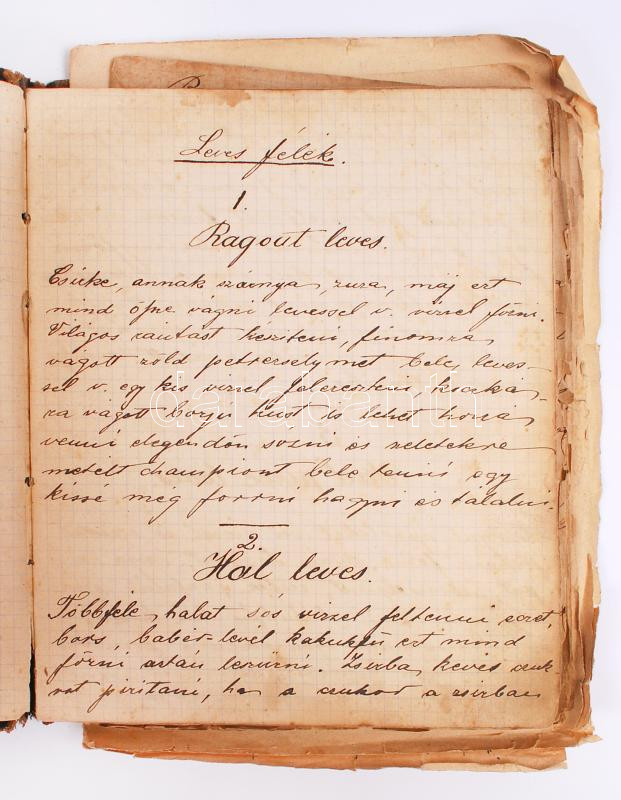 Leves félék.
1.
Ragout leves.
Csirke, annak szárnya, zuza, máj ezt
mind öszve vágni levessel v. vizzel főzni.
Világos rántást készíteni, finomra
vágott zöld petrezselymet bele leves-
sel v. egy kis vizzel felereszteni, koczká-
ra vágott borjú húst is lehet hozzá
venni elegendőn sózni és szeletekre
metélt championt bele tenni egy
kissé még forrni hagyni és tálalni.
2.
Hal leves.
Többféle halat sós vizzel feltenni eczet,
bors, babér-levél kakukfű ezt mind
főzni aztán leszűrni. Zsirba kevés czuk-
rot piritani, ha a czukor a zsirban
darabanth